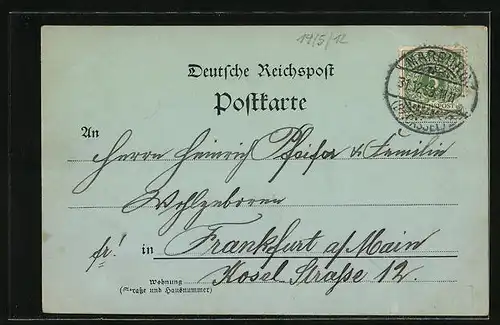 19/5/12
Deutsche Reichspost
Postkarte
An
Herrn Heinrich Pfeifer & Familie
Wohlgeboren
fr! in Frankfurt a/Main
Kosel Straße 12.
Wohnung
(Straße und Hausnummer)